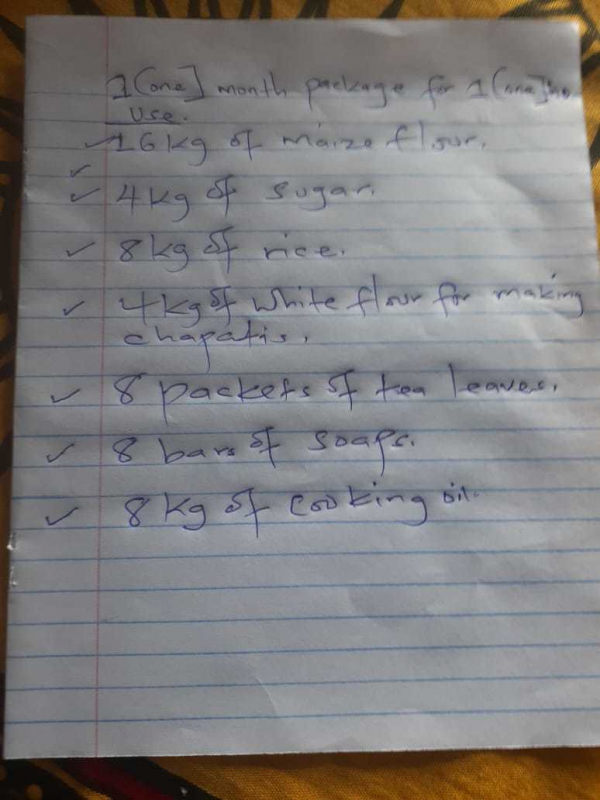 1(one] month package for 1(one]
use.
✓ 16kg of maize flour.
✓
✓ 4kg of sugar.
✓ 8kg of rice.
✓ 4kg of white flour for making
chapatis.
✓ 8 packets of tea leaves.
✓ 8 bars of soaps.
✓ 8kg of cooking oil.